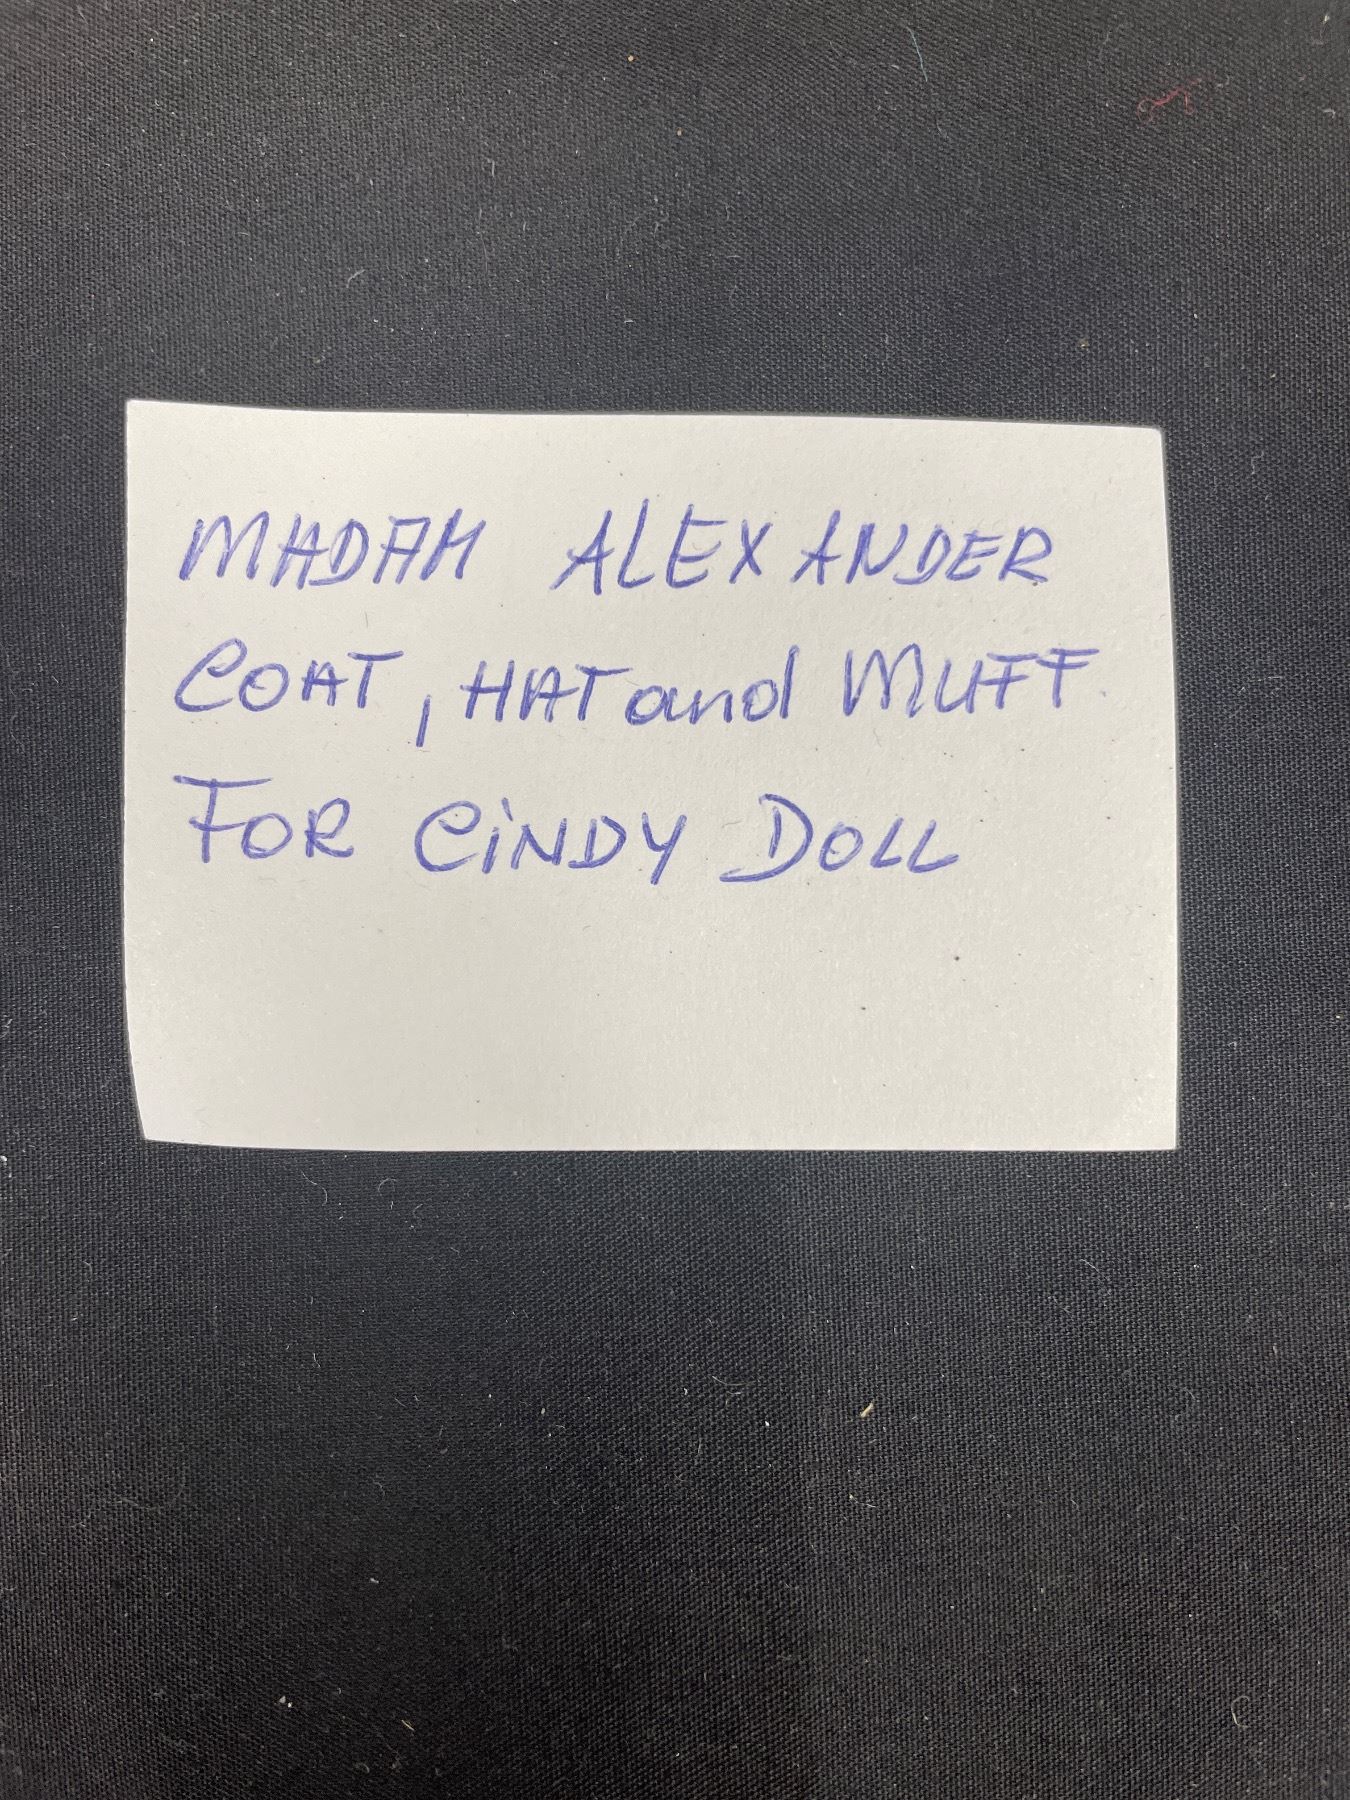 MADAM ALEXANDER
COAT, HAT and MUFF
FOR CiNDY DOLL